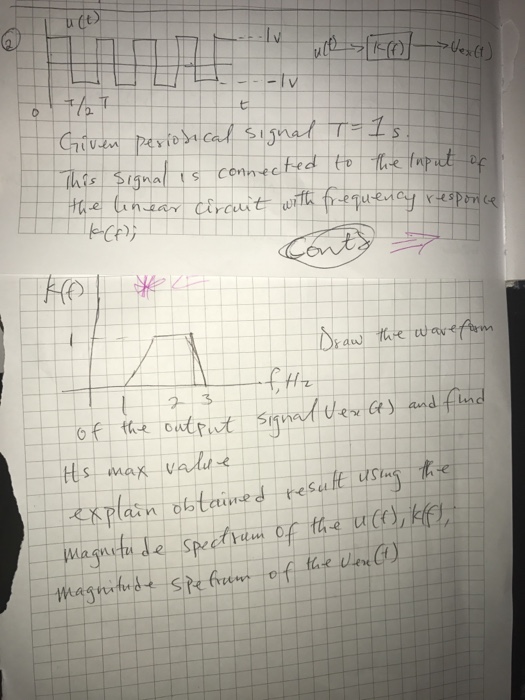 2
u(t)
1V
u(t) → K(f) → Vex(t)
-1V
0 T/2 T t
Given periodical signal T = 1s.
This signal is connected to the Input of
the linear circuit with frequency responce
K(f);
Cont'd
K(f)
1
Draw the waveform
1 2 3 f, Hz
of the output signal Vex(t) and find
Its max value
explain obtained result using the
magnitude spectrum of the u(t), k(f),
magnitude spetrum of the Vex(t)